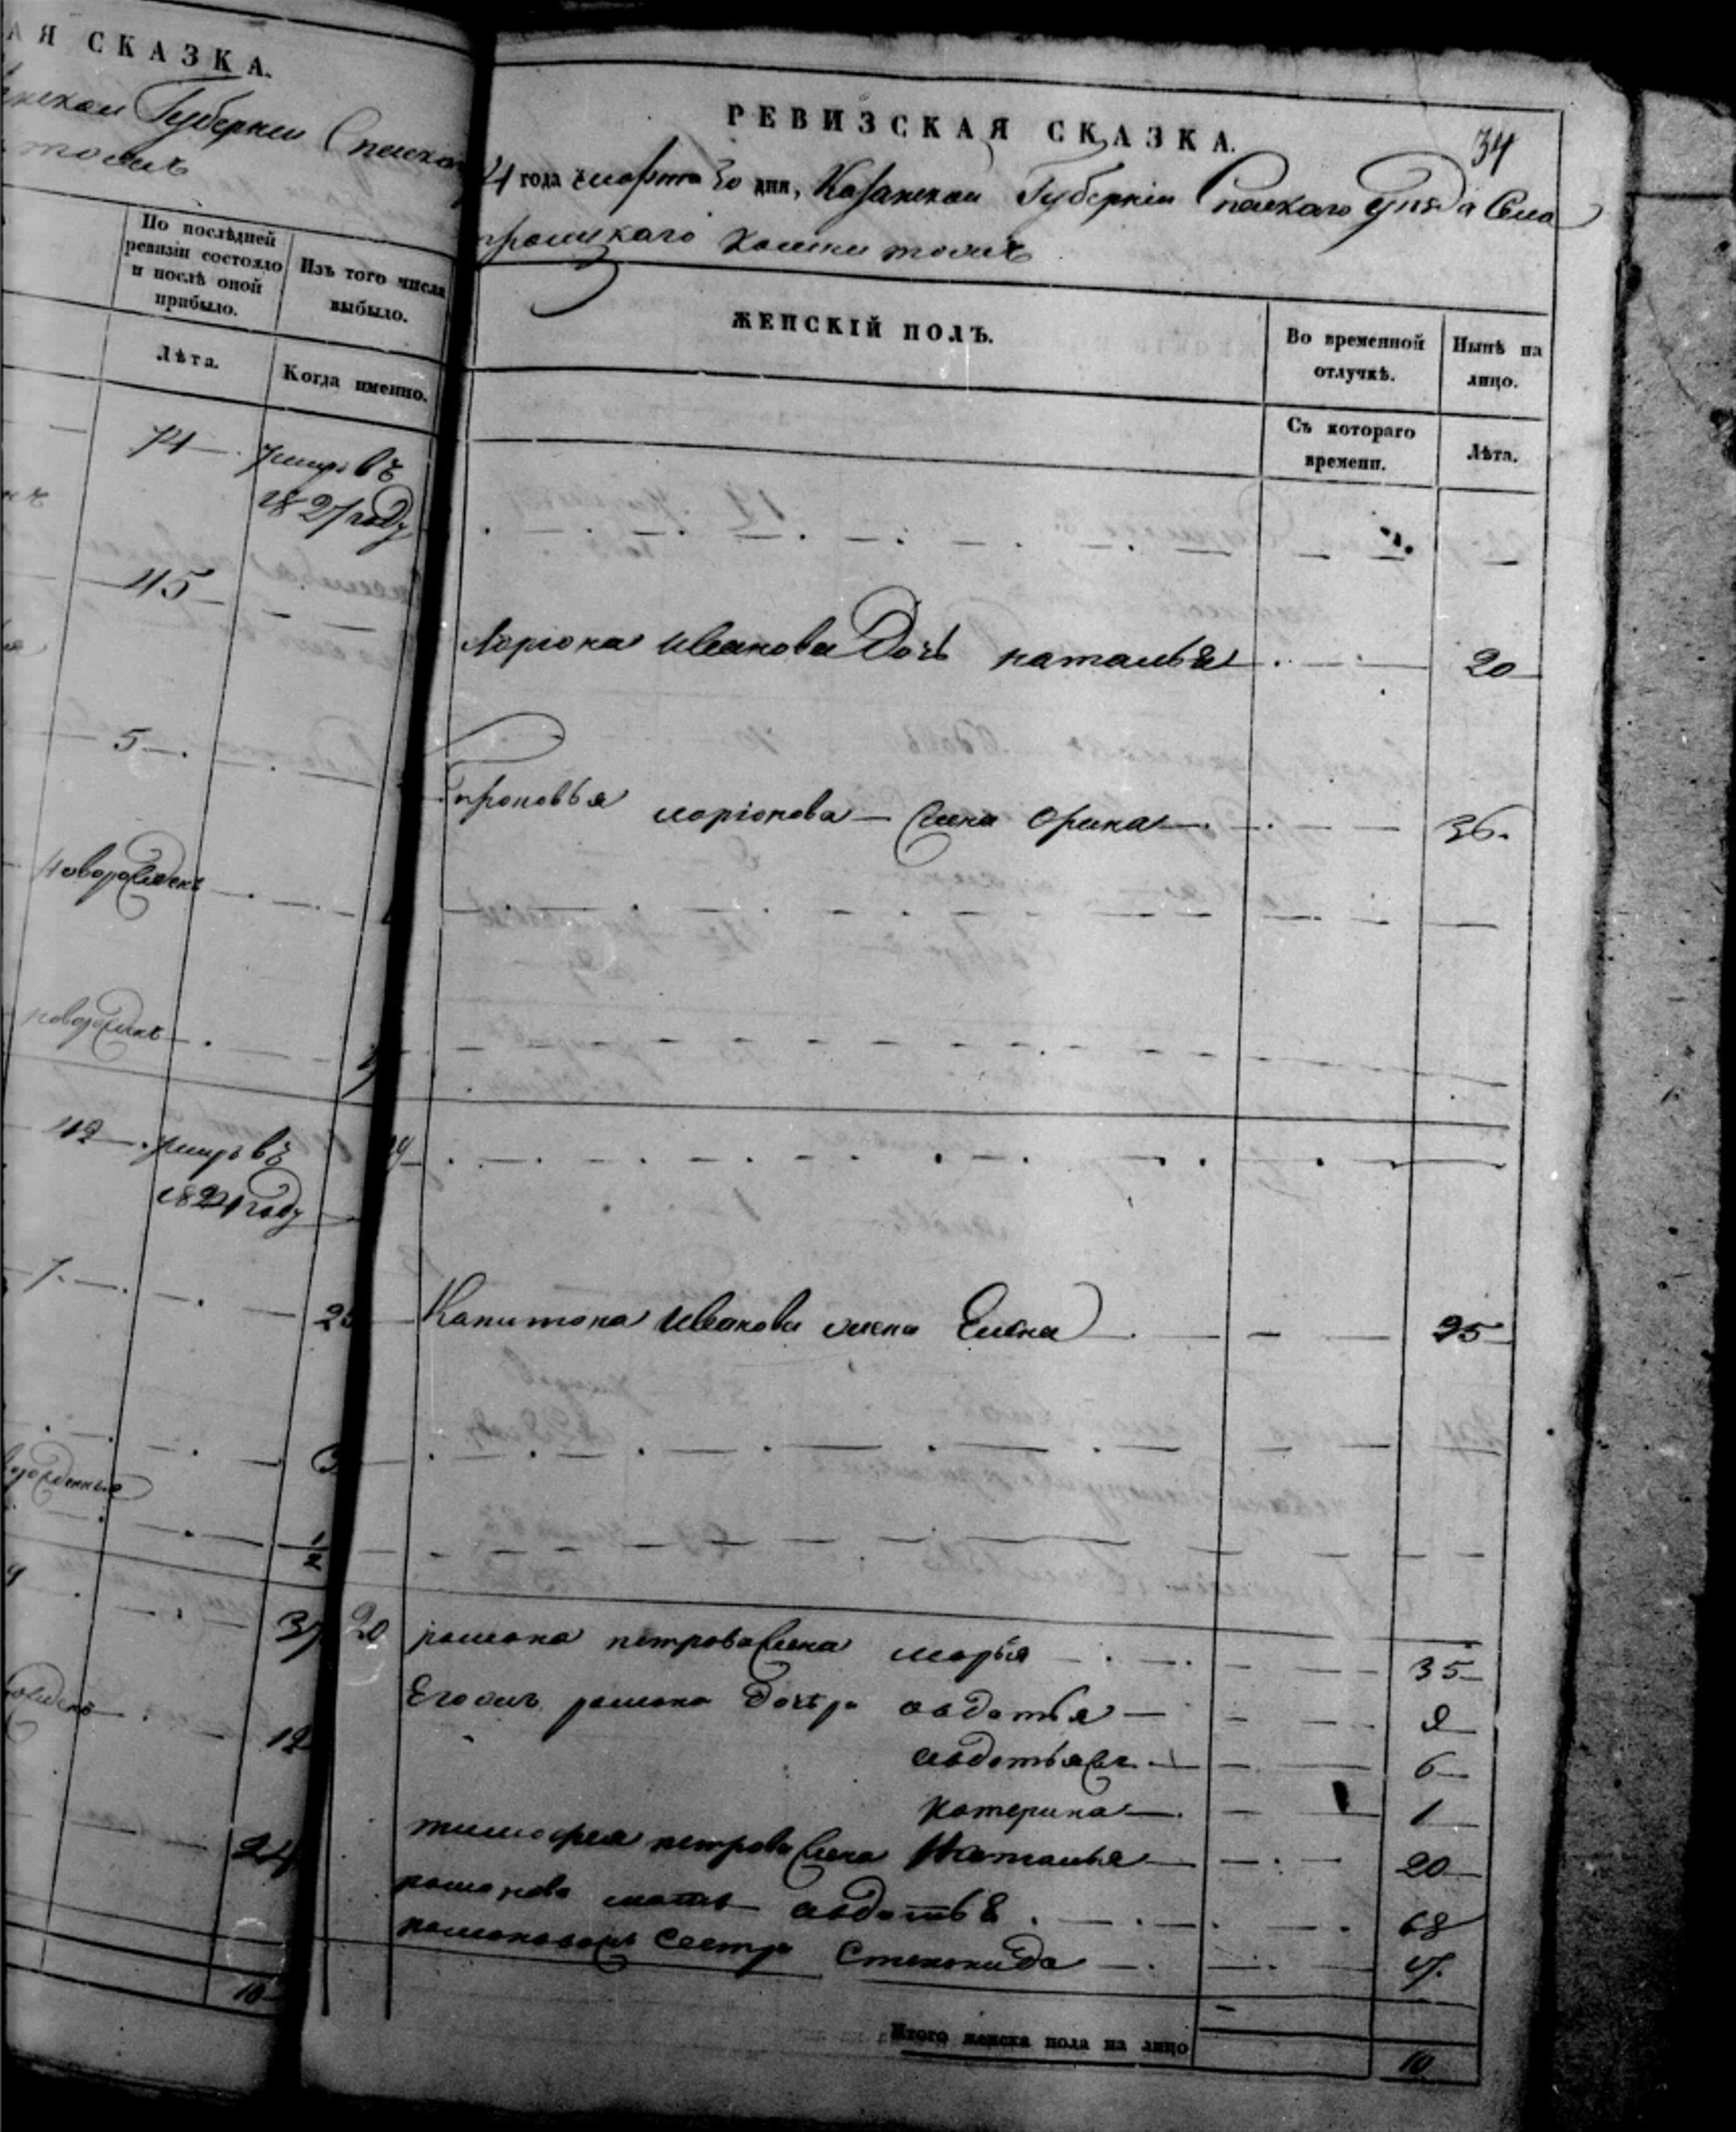 АЯ СКАЗКА.
Губернии Спаскаго
По послѣдней
ревизіи состояло
и послѣ оной
прибыло.
Изъ того числа
выбыло.
Лѣта.
Когда именно.
74 умре въ
1827 году
45
5
новорожденъ
новорожденъ
42 умре въ
1821 году
7
25
1/2
37
12
24
10
34
РЕВИЗСКАЯ СКАЗКА.
4 года марта 30 дня, Казанской Губерніи Спаскаго уезда Села
троицкаго
ЖЕНСКІЙ ПОЛЪ.
Во временной
отлучкѣ.
Нынѣ на
лицо.
Съ котораго
времени.
Лѣта.
Лариона Иванова Дочь наталья 20
ларіонова жена Орина 36
19
Капитона Иванова жена Елена 25
20 романа петрова жена марья 35
Его жъ романа дочери авдотья 9
авдотья жъ 6
катерина 1
тимофея петрова жена Наталья 20
романова мать авдотья 68
сестра Степонида
Итого женска пола на лицо 10